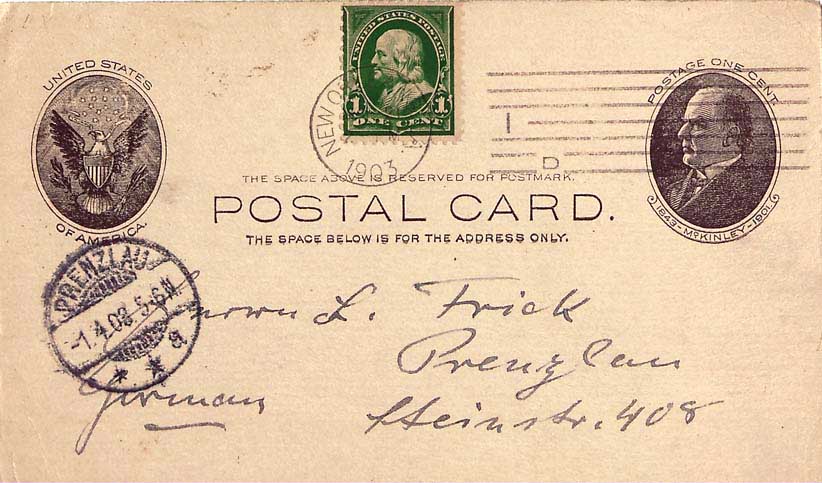 UNITED STATES
OF AMERICA.
UNITED STATES POSTAGE
1 1
ONE CENT
NEW O
1903
I
D
POSTAGE ONE CENT.
1843-McKINLEY-1901
THE SPACE ABOVE IS RESERVED FOR POSTMARK.
POSTAL CARD.
THE SPACE BELOW IS FOR THE ADDRESS ONLY.
PRENZLAU
-1.4.03.5-6N
* * a
L. Frick
Prenzlau
Steinstr. 408
German